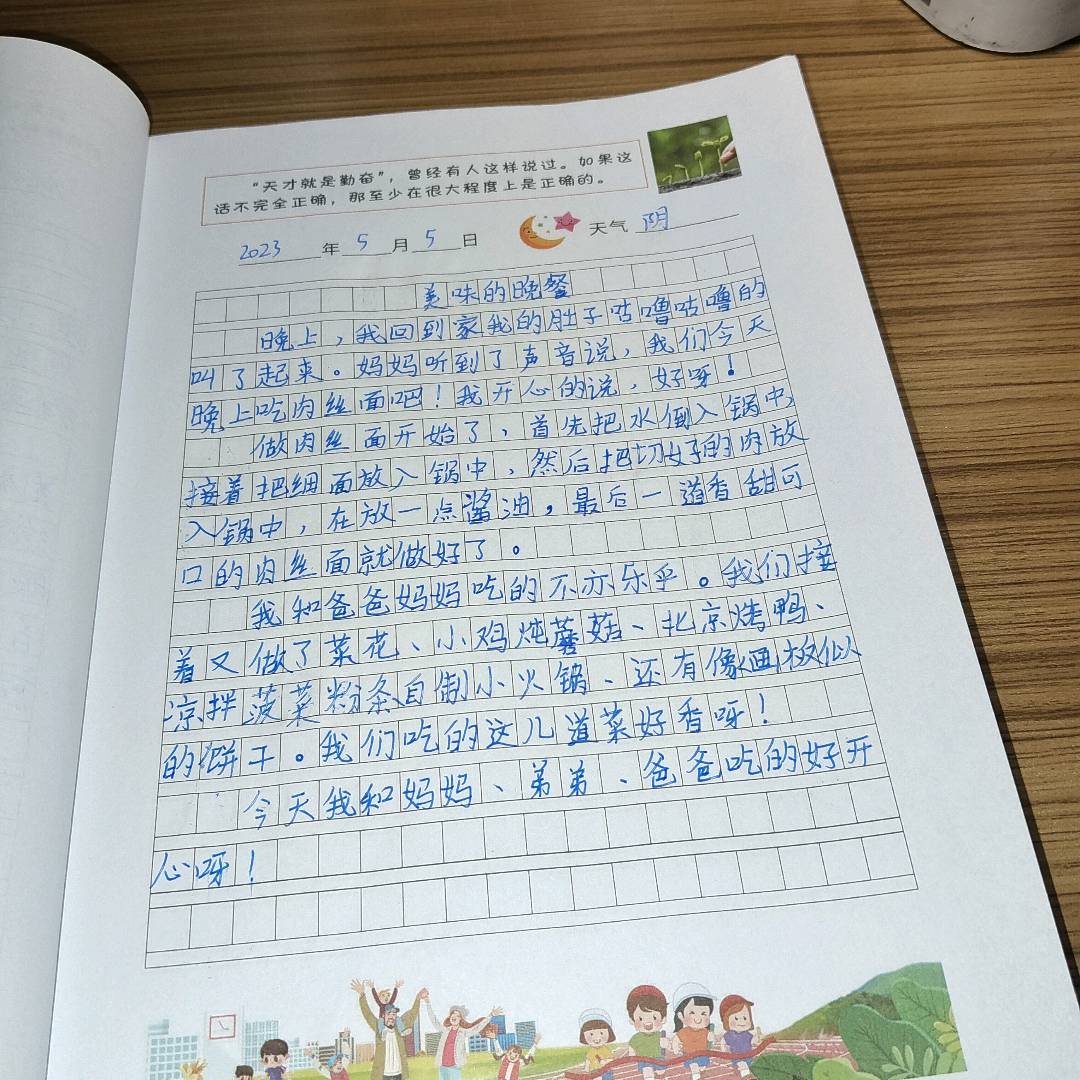 “天才就是勤奋”，曾经有人这样说过。如果这
话不完全正确，那至少在很大程度上是正确的。
2023年5月5日 天气 阴
美味的晚餐
晚上，我回到家我的肚子咕噜咕噜的
叫了起来。妈妈听到了声音说，我们今天
晚上吃肉丝面吧！我开心的说，好呀！
做肉丝面开始了，首先把水倒入锅中，
接着把细面放入锅中，然后把切好的肉放
入锅中，在放一点酱油，最后一道香甜可
口的肉丝面就做好了。
我和爸爸妈妈吃的不亦乐乎。我们接
着又做了菜花、小鸡炖蘑菇、北京烤鸭、
凉拌菠菜粉条自制小火锅、还有像画板似
的饼干。我们吃的这几道菜好香呀！
今天我和妈妈、弟弟、爸爸吃的好开
心呀！